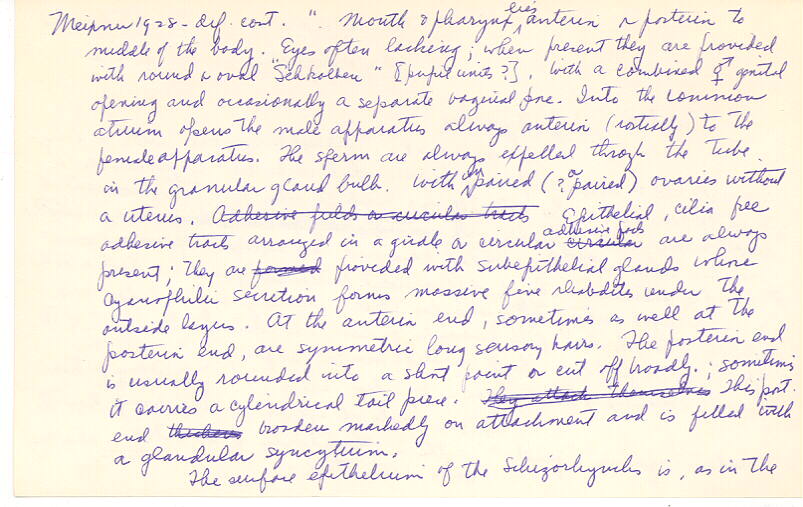 Meixner 1928 - def. cont. ". Mouth & pharynx lies anterior or posterior to
middle of the body. Eyes often lacking; when present they are provided
with round or oval "Sehkolben" [pupil units?]. With a combined ⚥ genital
opening and occasionally a separate vaginal pore. Into the common
atrium opens the male apparatus always anterior (rostrally) to the
female apparatus. The sperm are always expelled through the tube
in the granular gland bulb. With unpaired (? or paired) ovaries without
a uterus. Adhesive fields or circular tracts Epithelial, cilia free
adhesive tracts arranged in a girdle or circular adhesive fields circular are always
present; they are formed provided with subepithelial glands whose
cyanophilic secretion forms massive fine rhabdites under the
outside layer. At the anterior end, sometimes as well at the
posterior end, are symmetric long sensory hairs. The posterior end
is usually rounded into a short point or cut off broadly.; sometimes
it carries a cylindrical tail piece. They attach themselves This post.
end thickens broaden markedly on attachment and is filled with
a glandular syncytium.
The surface epithelium of the Schizorhynchs is, as in the